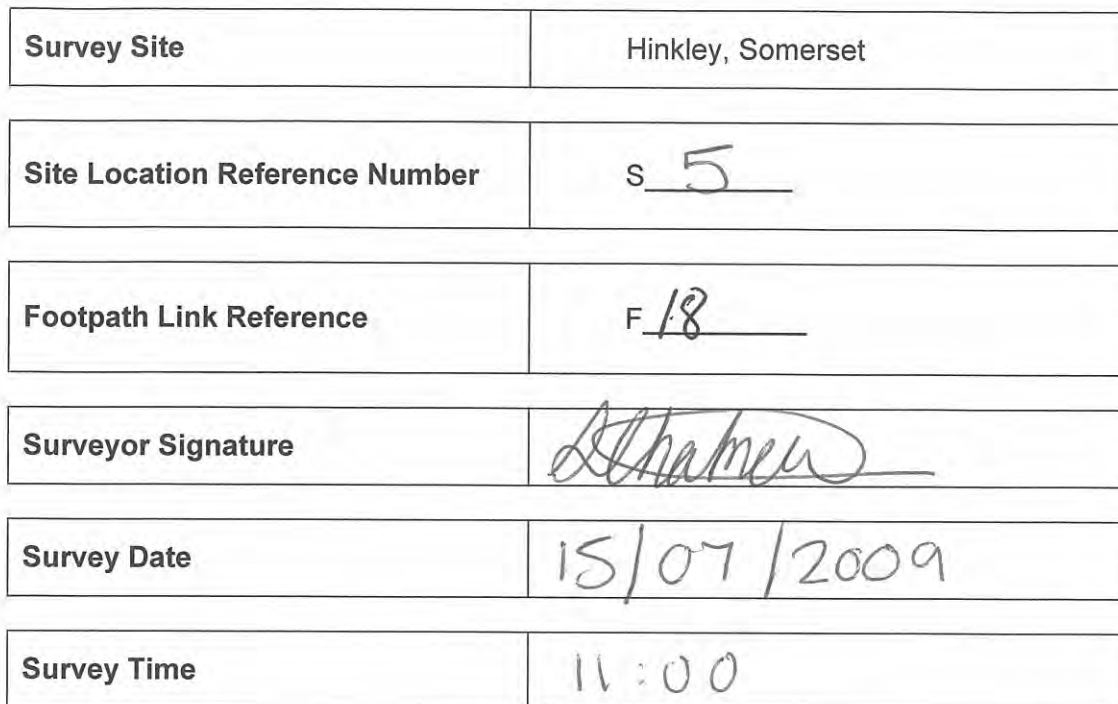 Survey Site Hinkley, Somerset
Site Location Reference Number S 5
Footpath Link Reference F 18
Surveyor Signature
Survey Date 15/07/2009
Survey Time 11:00